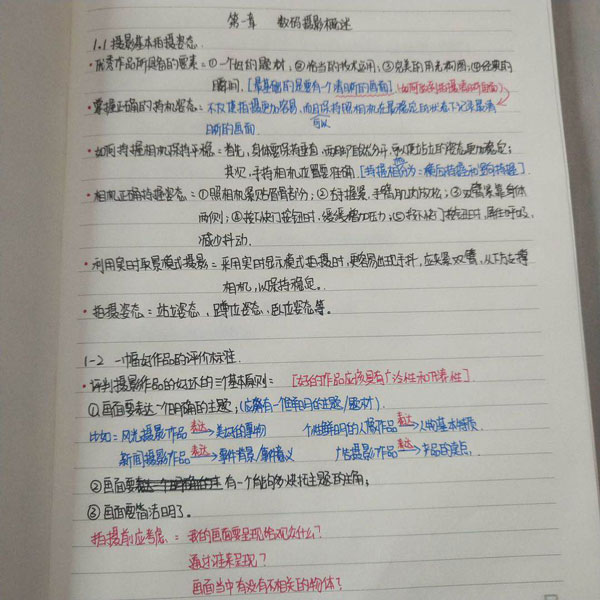 第一章 数码摄影概述
1.1 摄影基本拍摄姿态
·优秀作品所具备的要素：①一个好的题材，②恰当的技术运用，③完美的用光构图，④经典的
瞬间。[最基础的是要有一个清晰的画面](如何
·掌握正确的持机姿态：不仅使拍摄更加容易，而且保持照相机在最稳定的状态下记录最清
可以
晰的画面
·如何持握相机保持平稳：首先，身体要保持垂直，两脚自然分开，令人使站立的姿态更加稳定；
其次，手持相机位置要准确[持握相机分为：横向持握和竖向持握]
·相机正确持握姿态：①照相机紧贴眉骨部分；②右手握紧，手臂肌肉放松；③双臂紧靠身体
两侧；④按下快门按钮时，缓缓增加压力；⑤按下快门按钮时，屏住呼吸，
减少抖动.
·利用实时取景模式摄影：采用实时显示模式拍摄时，更容易出现手抖，应夹紧双臂，从下方支撑
相机，以保持稳定。
·拍摄姿态：站立姿态、蹲位姿态、卧位姿态等。
1-2 一幅好作品的评价标准.
·评判摄影作品的好坏的三个基本原则： [好的作品应该具有广泛性和开养性].
①画面要表达一个明确的主题；(应黹有一个鲜明的主题/题材).
比如：风光摄影作品 表达→美好的事物 个性鲜明的人像作品 表达→人物基本特质
新闻摄影作品 表达→事件背景/事件意义 广告摄影作品 表达→产品的卖点.
②画面要 有一个能够烘托主题的主角；
③画面要简洁明了。
拍摄前应考虑：我的画面要呈现给观众什么？
通过谁来呈现？
画面当中有没有不相关的物体？